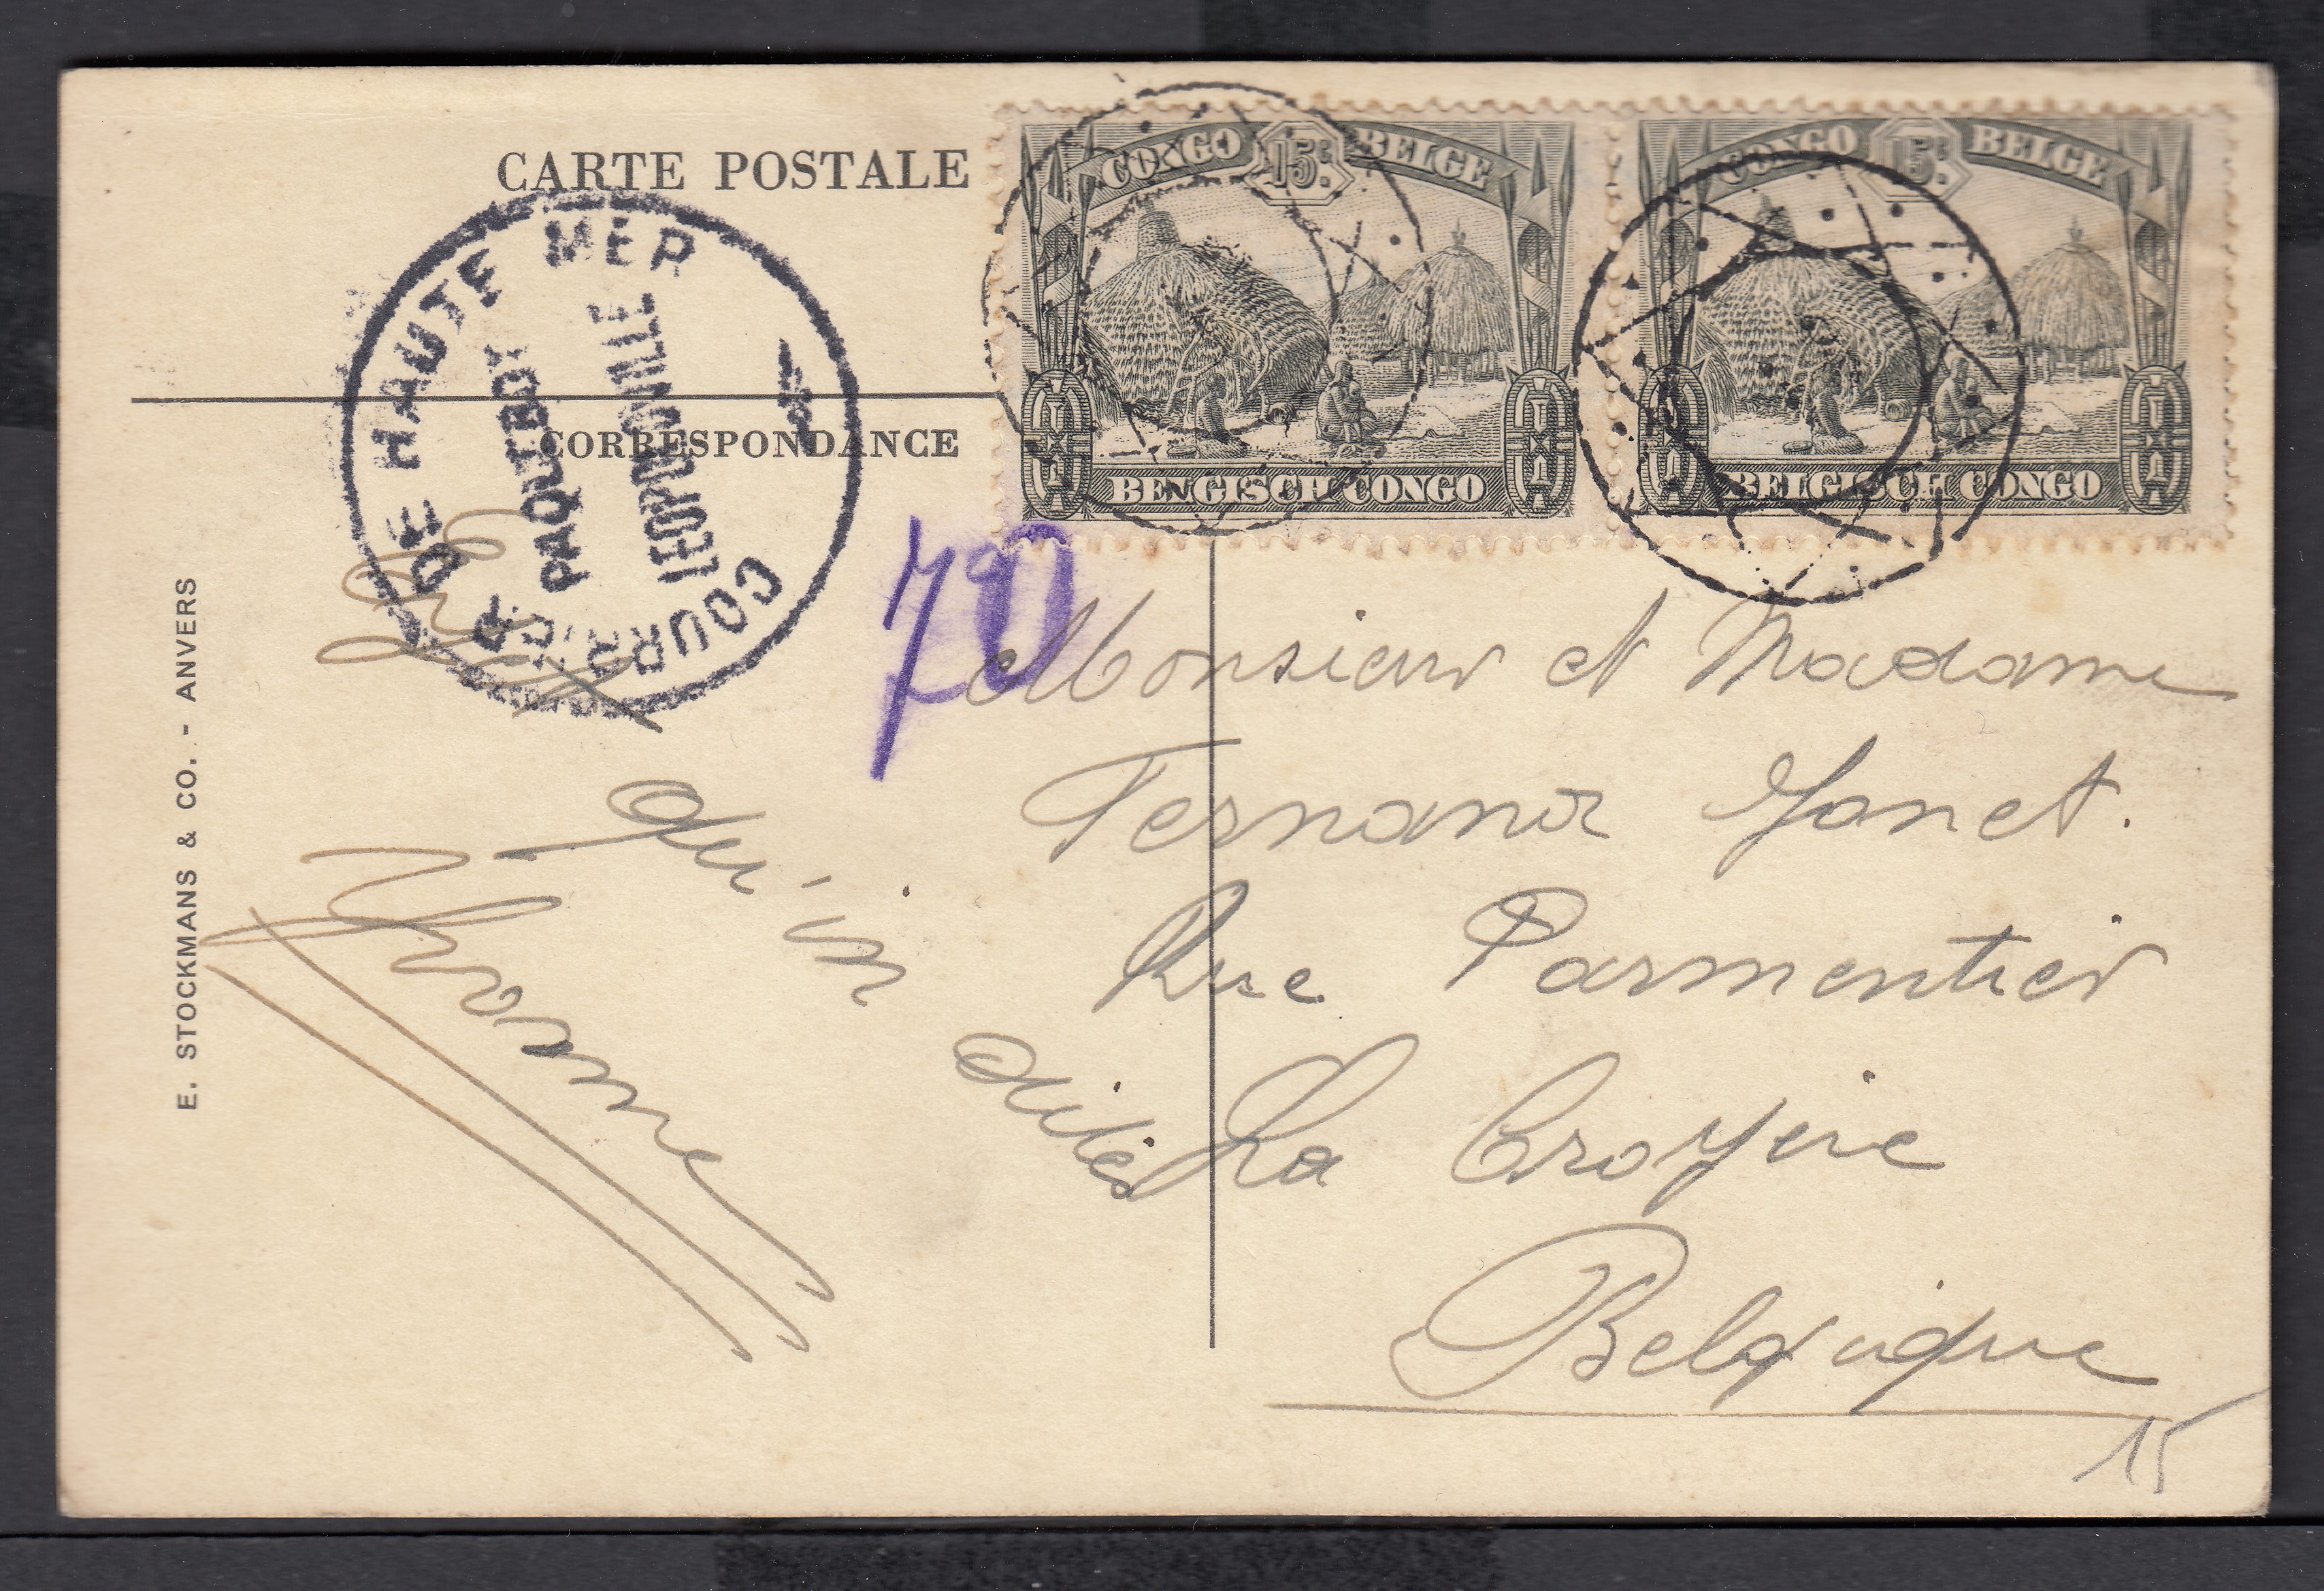 CARTE POSTALE
CONGO 15c. BELGE
BELGISCH CONGO
CONGO 15c. BELGE
BELGISCH CONGO
COURRIER DE HAUTE MER
PAQUEBOT
LEOPOLDVILLE
CORRESPONDANCE
70
E. STOCKMANS & CO. - ANVERS
Monsieur et Madame
Fernand Janet.
Rue Parmentier
La Croyère
Belgique
15